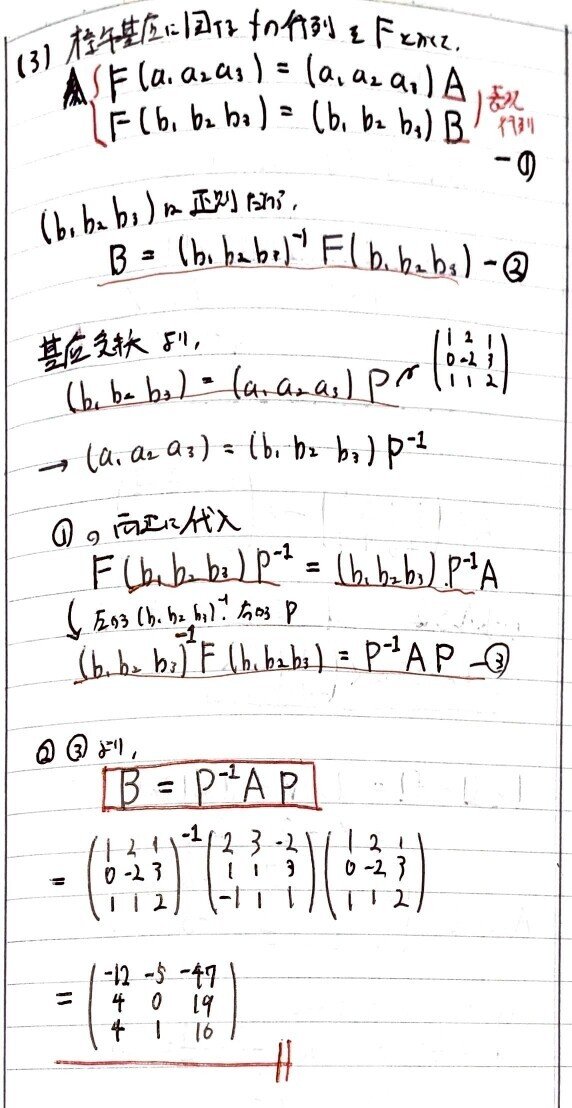 (3) 標準基底に関する fの行列を Fとおくと,
F(a₁ a₂ a₃) = (a₁ a₂ a₃) A
F(b₁ b₂ b₃) = (b₁ b₂ b₃) B
表現行列
― ①
(b₁ b₂ b₃) は 正則だから,
B = (b₁ b₂ b₃)⁻¹ F(b₁ b₂ b₃) ― ②
基底変換 より,
(b₁ b₂ b₃) = (a₁ a₂ a₃) P
( 1 2 1
0 -2 3
1 1 2 )
→ (a₁ a₂ a₃) = (b₁ b₂ b₃) P⁻¹
① の 両辺に代入
F(b₁ b₂ b₃) P⁻¹ = (b₁ b₂ b₃) P⁻¹A
左から (b₁ b₂ b₃)⁻¹. 右から P
(b₁ b₂ b₃)⁻¹ F (b₁ b₂ b₃) = P⁻¹ A P ― ③
② ③ より,
B = P⁻¹ A P
= ( 1 2 1 )⁻¹ ( 2 3 -2 ) ( 1 2 1 )
( 0 -2 3 ) ( 1 1 3 ) ( 0 -2 3 )
( 1 1 2 ) ( -1 1 1 ) ( 1 1 2 )
= ( -12 -5 -47 )
( 4 0 19 )
( 4 1 16 )